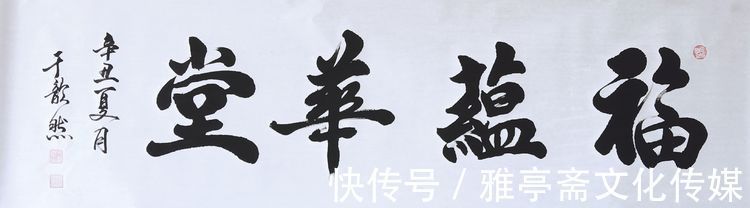 福蘊華堂
辛丑夏月
于歆然
快传号 / 雅亭斋文化传媒